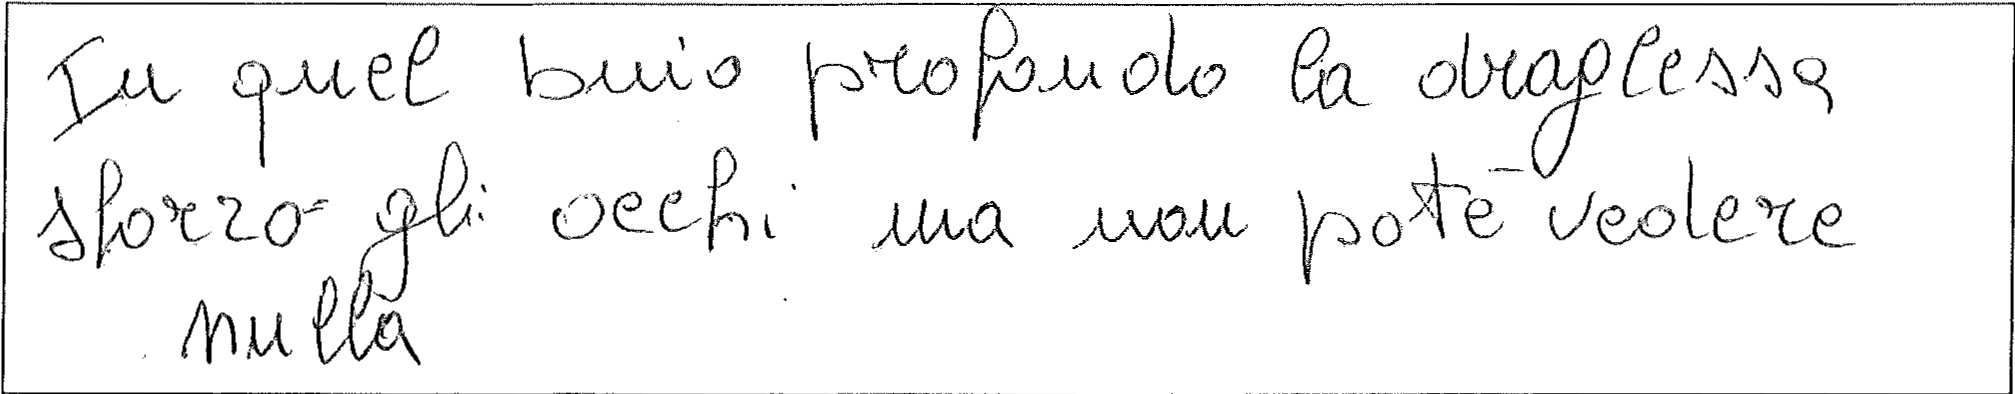 In quel buio profondo la draglessa
sforzò gli occhi ma non potē vedere
nulla